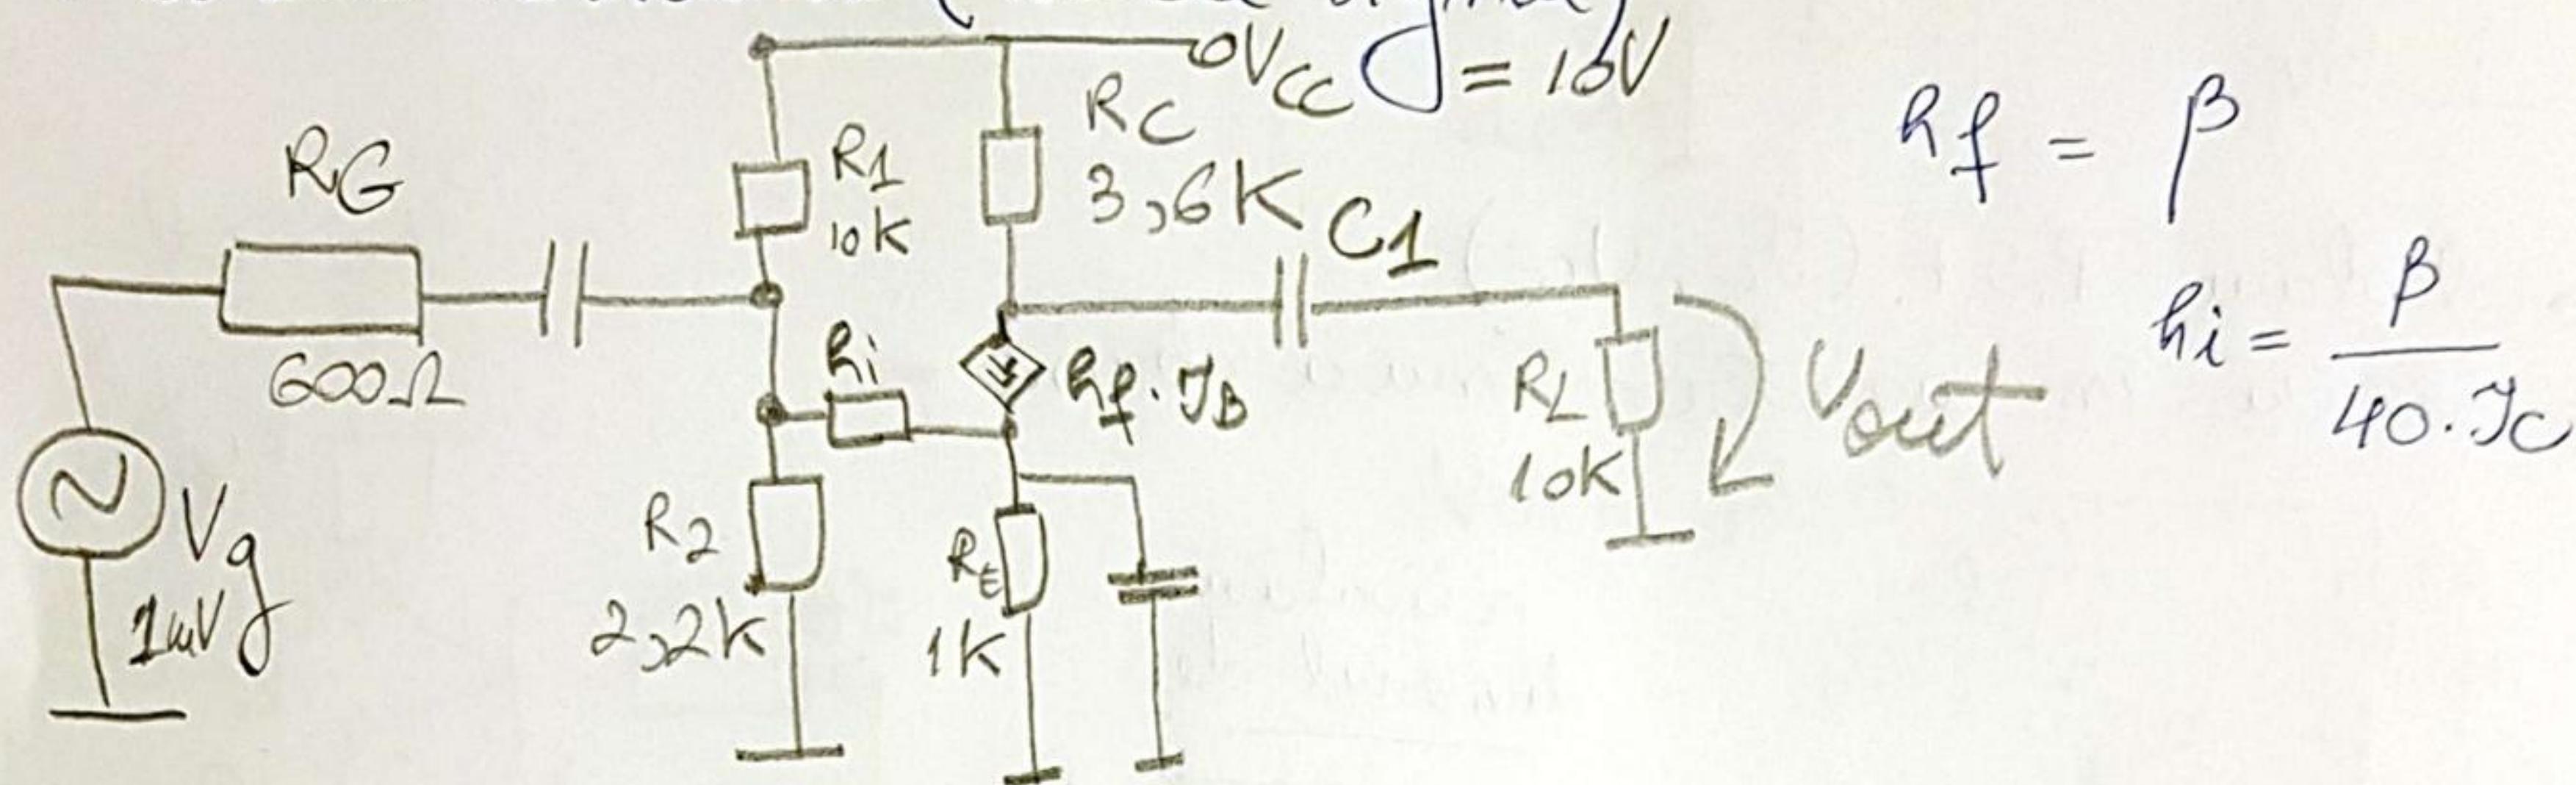 VCC = 10V
RG
600Ω
Vg
1mV
R1
10K
RC
3,6K
C1
hi
hf·IB
R2
2,2K
RE
1K
RL
10K
Vout
hf = β
hi = β / 40·IC